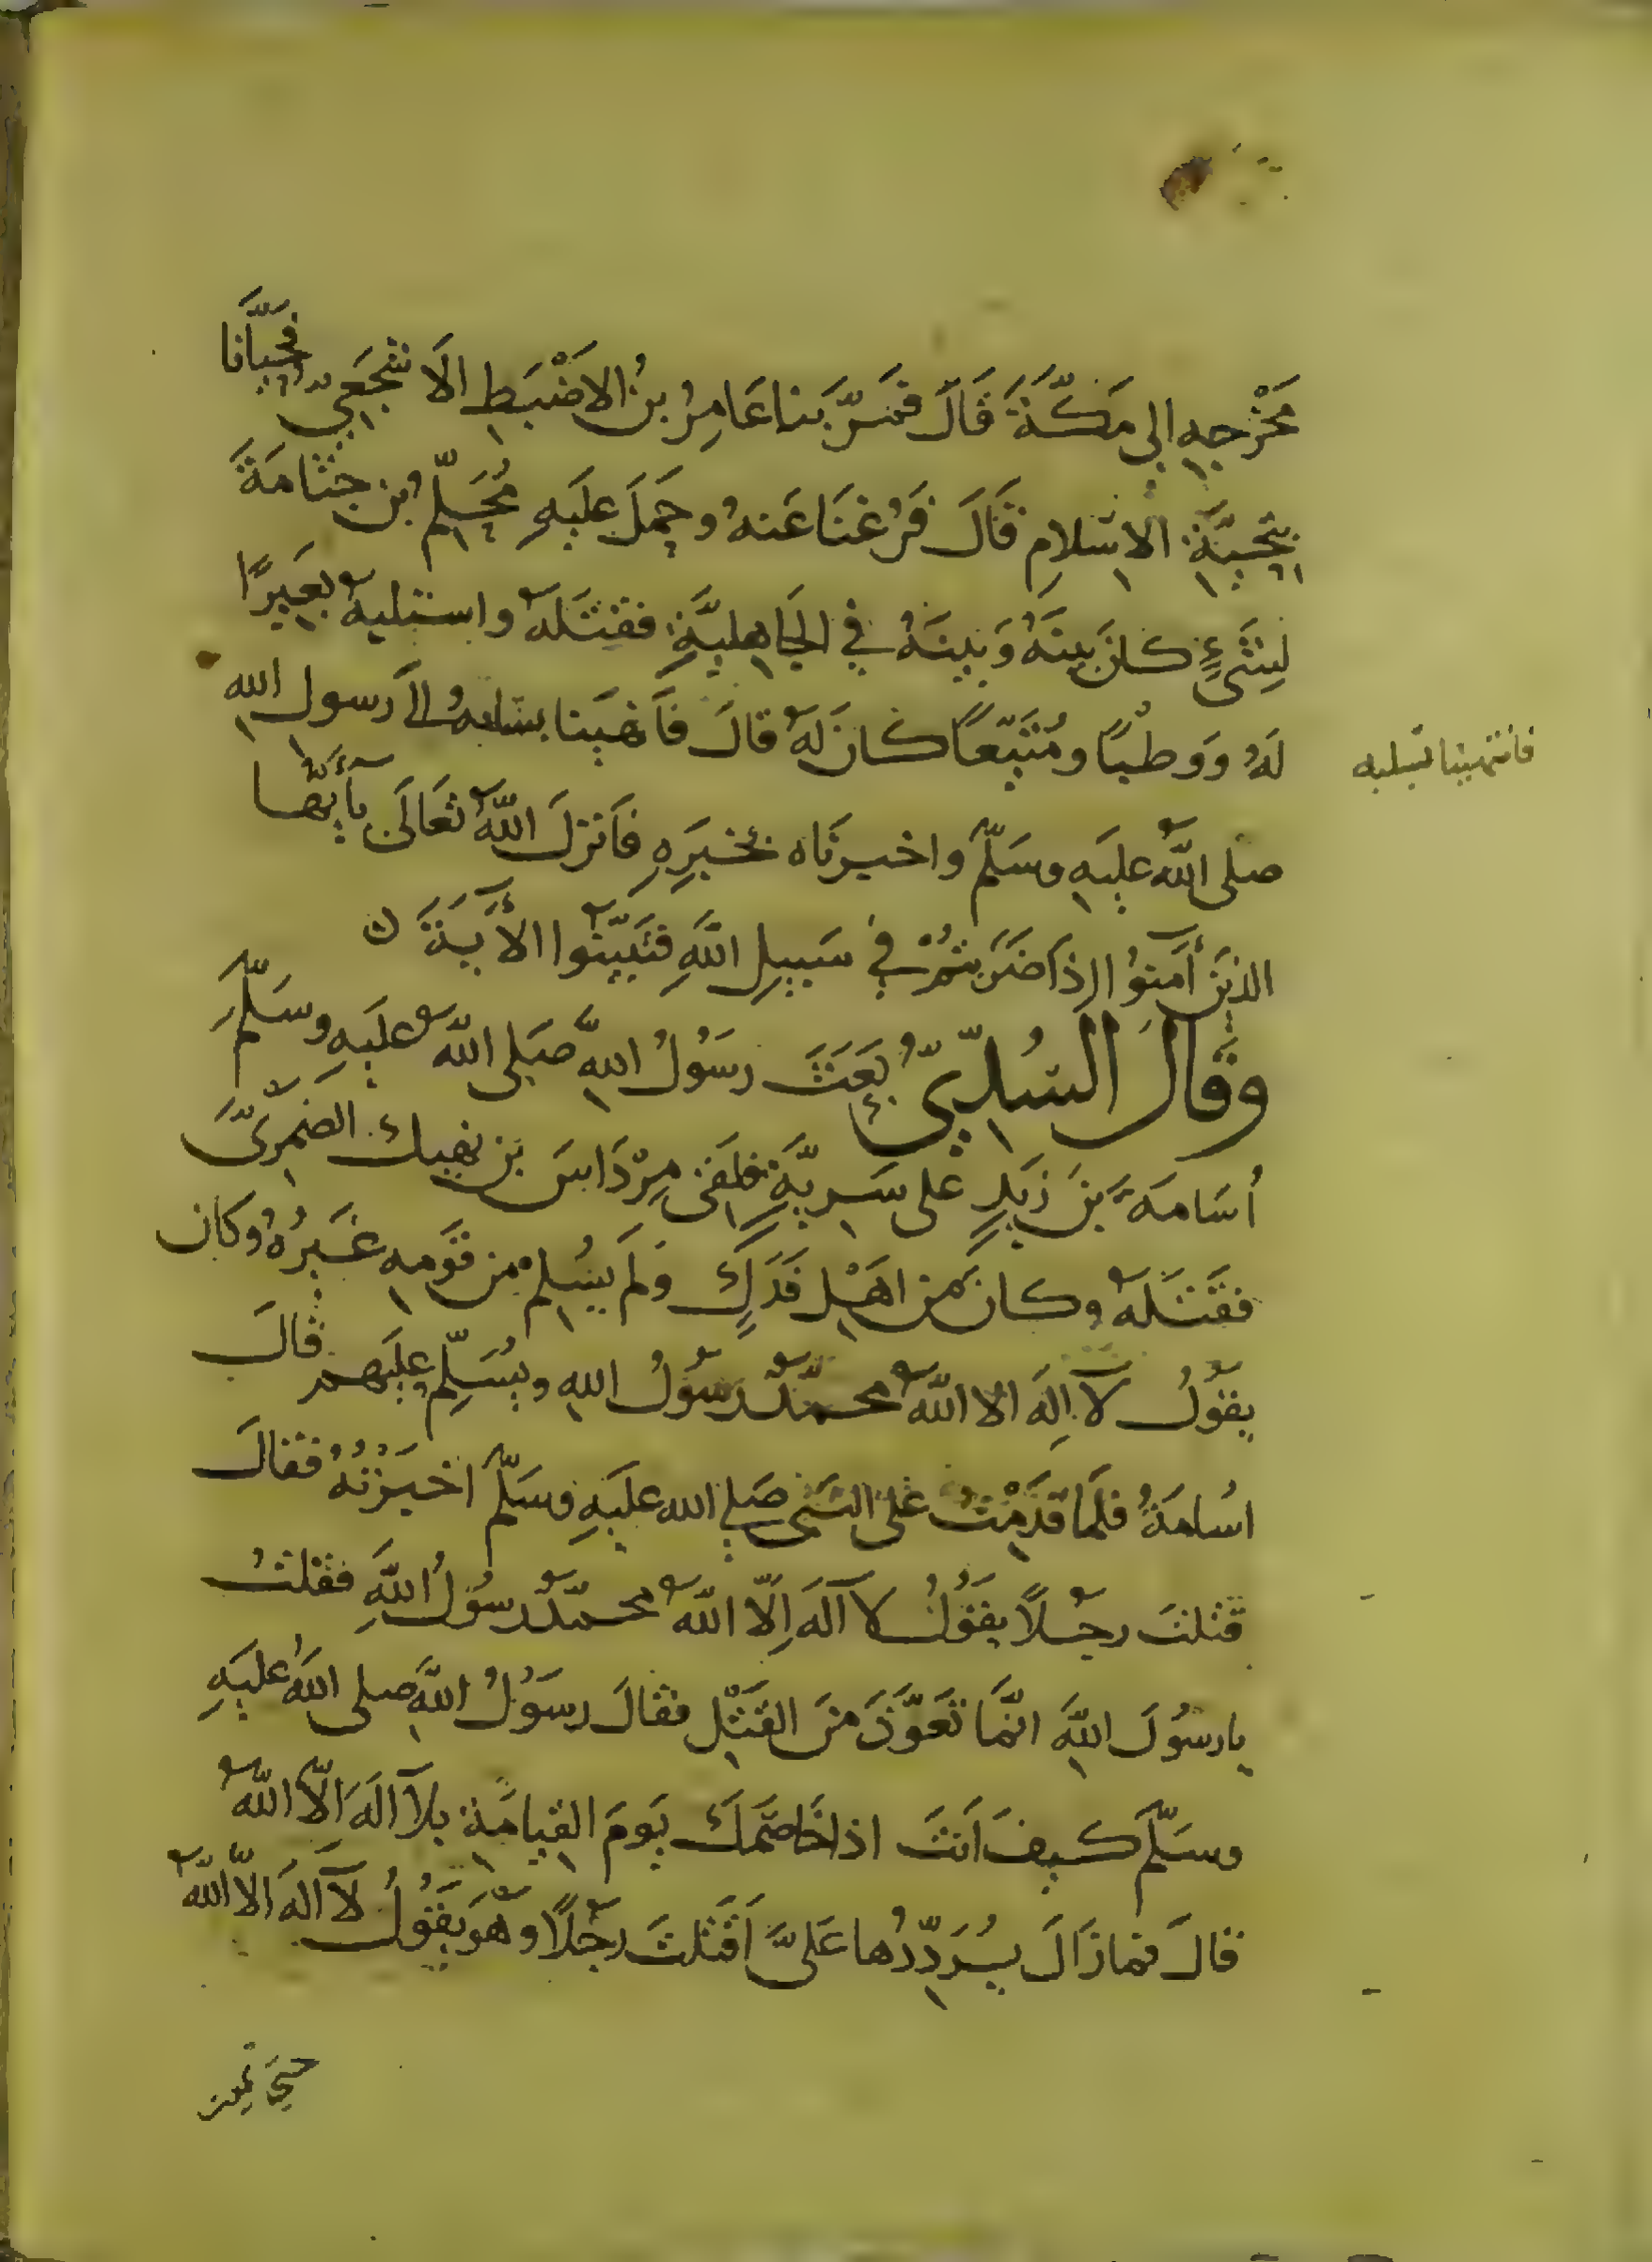 مَخْرَجِهِ الي مَكَّةَ قَالَ فَمَرَّ بنا عَامِرُ بنُ الاضْبَطِ الاَشْجَعِي فَحَيَّانا
بِتَحِيَّةِ الاِسْلامِ قَالَ فَرُغنَا عَنهُ وحَمَلَ عَلَيهِ مُحَلِّمُ بن جَثَّامَةَ
لِشَىْءٍ كَانَ بينَهُ وَبَينَهُ في الجَاهِليَّةِ فقتَلَهُ واستلبهُ بَعِيرًا
لَهُ وَوَطبًا ومُتَيّعًا كَانَ لَهُ قالَ فَانهَينا بشابهُ الىَ رسول الله
صلى اللهُ عليَهِ وسَلّم واخبرنَاه بخَبَرِهِ فَانزلَ اللهُ تَعَالَى يأَيّهَا
الذينَ أَمَنوُا اذَا ضَرَبتُمْ في سَبيِل اللَّهِ فَتَبَيَّنُوا الأَيَةَ ن
وقَالَ السُّدِّيّ بَعَثَ رسَوُلُ اللهِ صَلى اللهُ عَليَهِ وسَلّمَ
أُسَامَةَ بنَ زَيَدٍ على سَريَّةٍ فلَقىَ مِرْدَاسَ بن نهيك الضَمرىَّ
فقَتَلَهُ وكانَ مِن اهْلِ فَدَكٍ وَلَم يسُلِمْ مِن قَوَمِهِ غَيَرُهُ وكان
يقَوُلُ لآ اِلهَ الا اللهُ محمدٌ رسَوُلُ اللهِ ويُسَلِّمُ عليَهم قالَ
اسُامَةُ فلَما قدَمِتُ عَلى النبَي صَلي الله عليَهِ وسَلّم اخبَرتُهُ فقالَ
قَتلتَ رجُلاً يقَوُلُ لاَ آلهَ اِلّا اللهُ محمدٌ رسُوَلُ اللهِ فقلتُ
يا رسُولَ اللهِ انّمَا تَعَوَّذَ مَنَ القَتْلِ فقالَ رسوَلُ اللهِ صلى اللهُ عليَهِ
وسَلّم كيفَ اَنتَ اذا خَاصَمَكَ يَومَ القِيامَةِ بلاَ آلهَ اِلّا اللهُ
قالَ فمازَالَ يُرَدِّدُها عَلىَّ اَقَتَلتَ رجُلًا وهُوَ يَقوُلُ لآ آلهَ الاّ اللهُ
فانتهينا بسلبه
حتي تمنيت